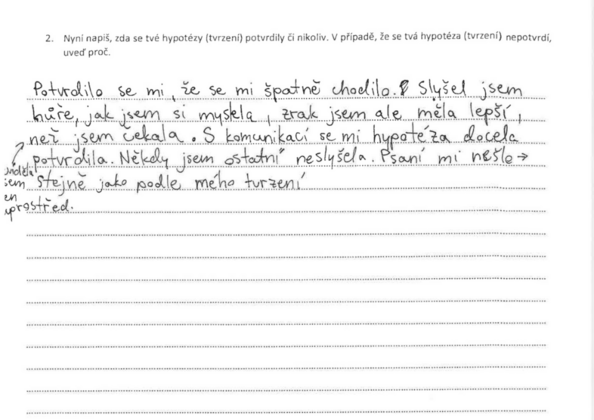 2. Nyní napiš, zda se tvé hypotézy (tvrzení) potvrdily či nikoliv. V případě, že se tvá hypotéza (tvrzení) nepotvrdí,
uveď proč.
Potvrdilo se mi, že se mi špatně chodilo. Slyšel jsem
hůře, jak jsem si myslela, zrak jsem ale měla lepší,
než jsem čekala. S komunikací se mi hypotéza docela
potvrdila. Někdy jsem ostatní neslyšela. Psaní mi nešlo →
stejně jako podle mého tvrzení
jsem
en
uprostřed.